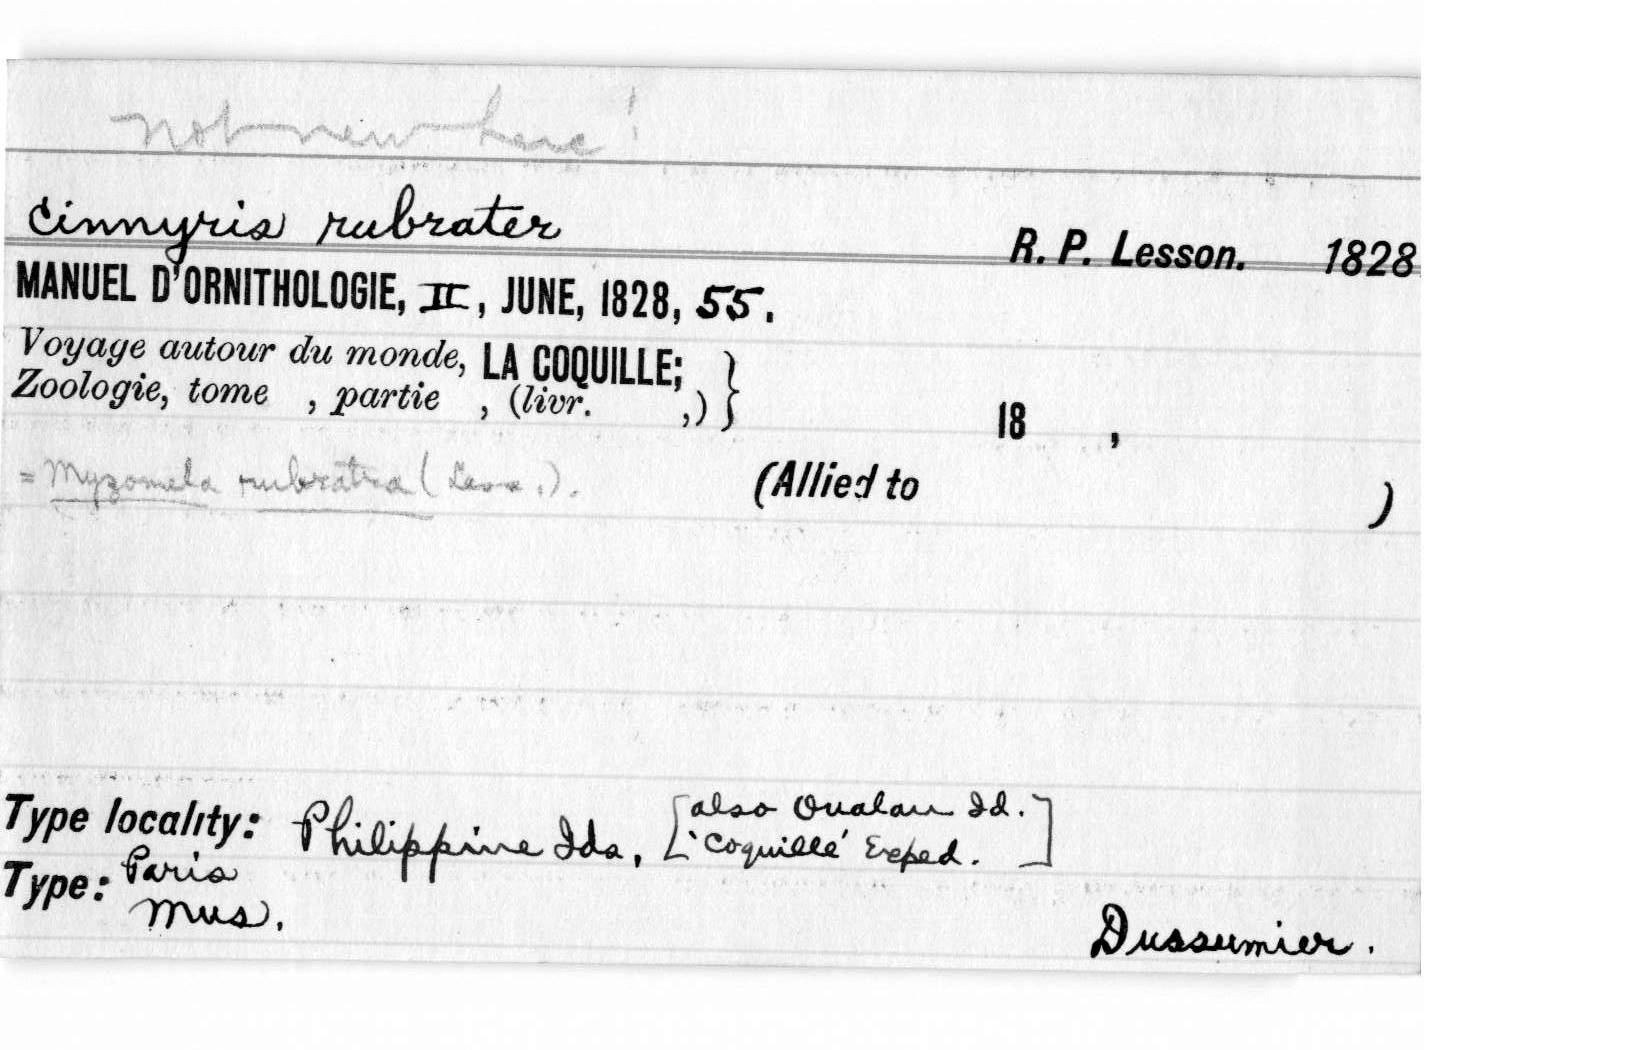 not new here!
Cinnyris rubrater R. P. Lesson. 1828
MANUEL D'ORNITHOLOGIE, II, JUNE, 1828, 55.
Voyage autour du monde, LA COQUILLE;
Zoologie, tome , partie , (livr. ,) } 18 ,
= Myzomela rubratra (Less.). (Allied to )
Type locality: Philippine Ids, [also Oualan Id.
'Coquille' Exped.]
Type: Paris
Mus.
Dussumier.